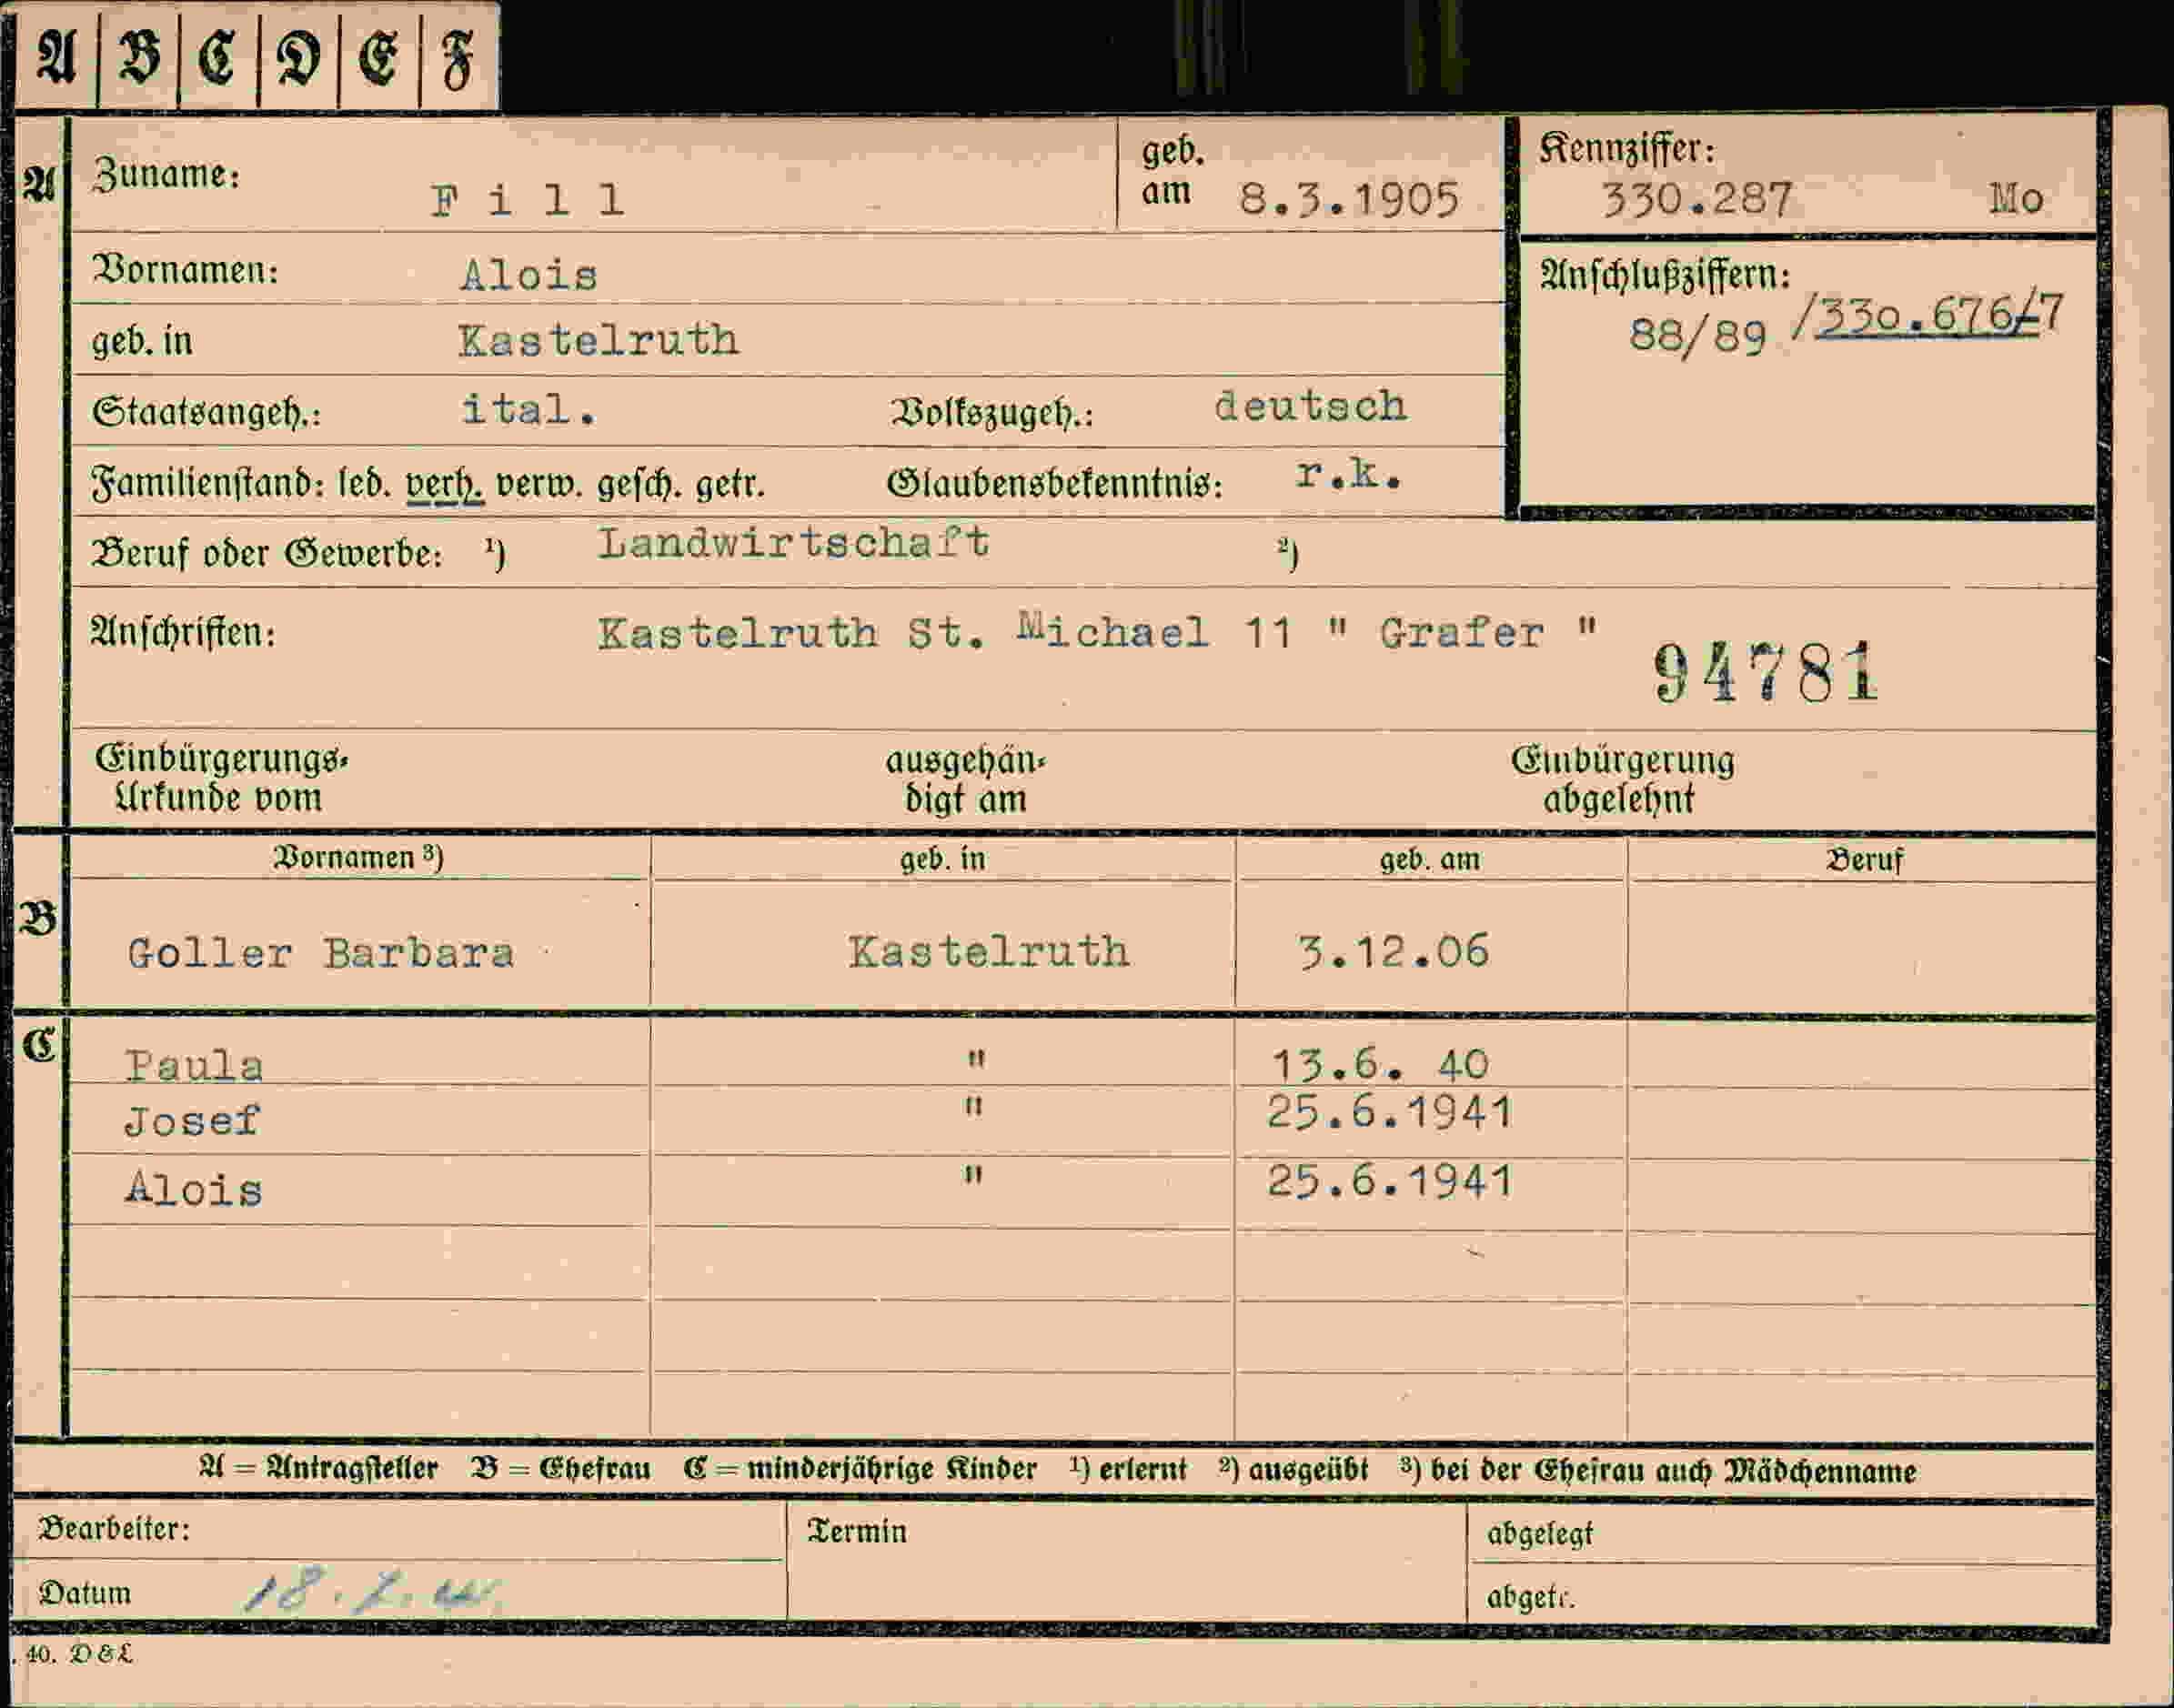 A B C D E F
A Zuname: Fill geb. am 8.3.1905 Kennziffer: 330.287 Mo
Vornamen: Alois Anschlußziffern: 88/89 /330.676/7
geb. in Kastelruth
Staatsangeh.: ital. Volkszugeh.: deutsch
Familienstand: led. verh. verw. gesch. getr. Glaubensbekenntnis: r.k.
Beruf oder Gewerbe: ¹) Landwirtschaft ²)
Anschriften: Kastelruth St. Michael 11 " Grafer "
94781
Einbürgerungs- ausgehän- Einbürgerung
Urkunde vom digt am abgelehnt
Vornamen ³) geb. in geb. am Beruf
B Goller Barbara Kastelruth 3.12.06
C Paula " 13.6. 40
Josef " 25.6.1941
Alois " 25.6.1941
A = Antragsteller B = Ehefrau C = minderjährige Kinder ¹) erlernt ²) ausgeübt ³) bei der Ehefrau auch Mädchenname
Bearbeiter: Termin abgelegt
Datum abgetr.
. 40. D & L